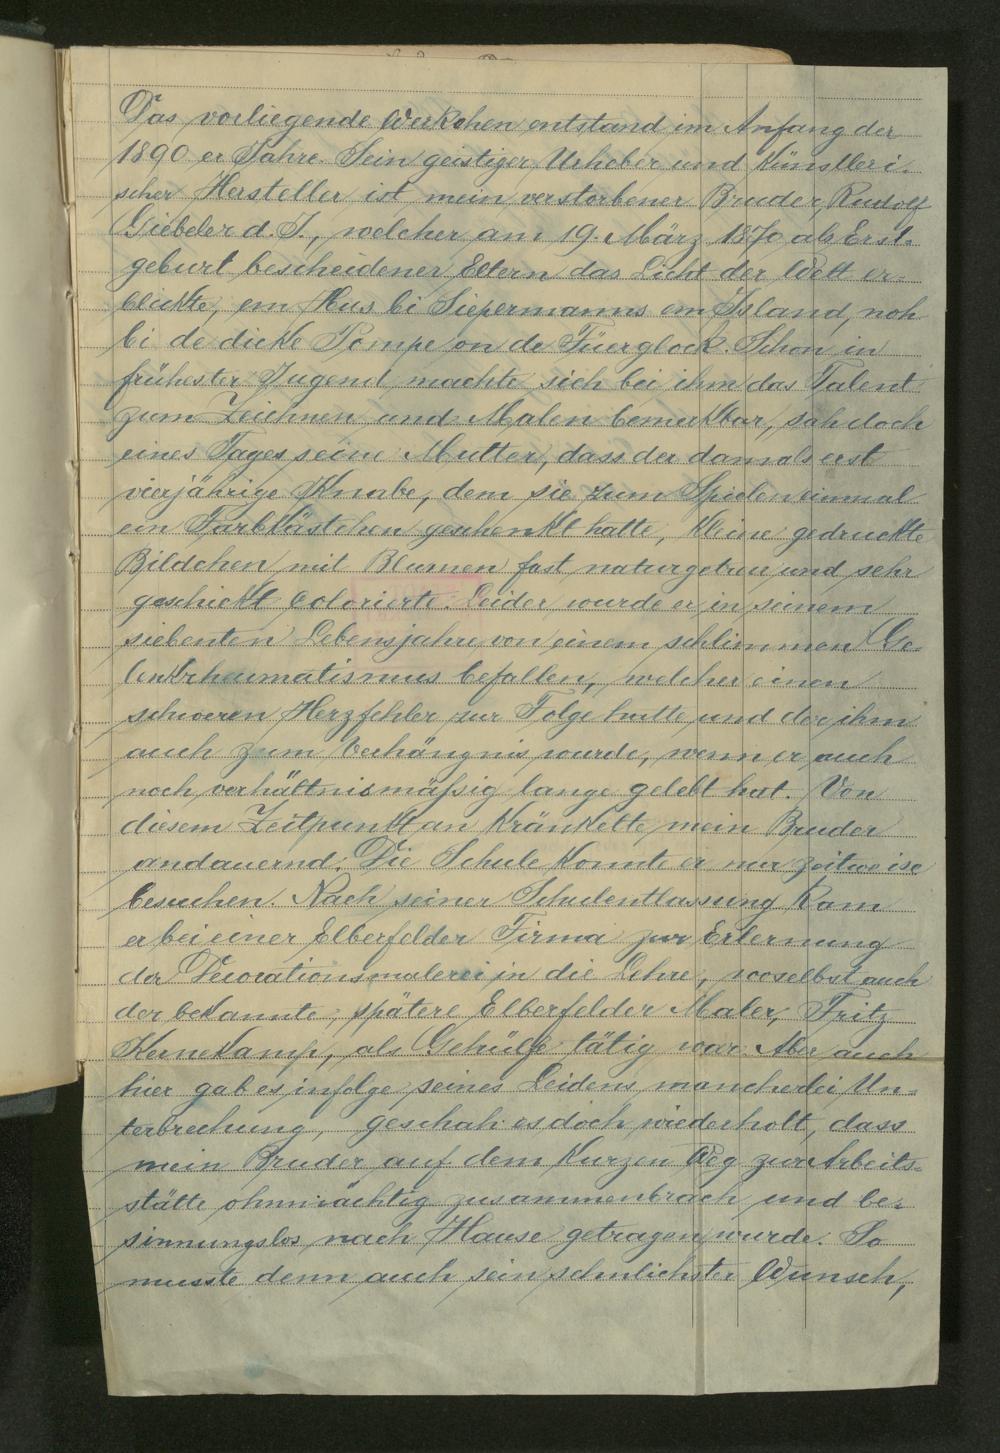 Das vorliegende Werkchen entstand im Anfang der
1890 er Jahre. Sein geistiger Urheber und Künstleri-
scher Hersteller ist mein verstorbener Bruder, Rudolf
Giebeler d. J., welcher am 19. März 1870 als Erst-
geburt bescheidener Eltern das Licht der Welt er-
blickte, em Hus bi Siepermanns em Island, noh
bi de dicke Pompe on de Füerglock. Schon in
frühester Jugend machte sich bei ihm das Talent
zum Zeichnen und Malen bemerkbar, sah doch
eines Tages seine Mutter, dass der damals erst
vierjährige Knabe, dem sie zum Spielen einmal
ein Farbkästchen geschenkt hatte, Kleine gedruckte
Bildchen mit Blumen fast naturgetreu und sehr
geschickt colorierte. Leider wurde er in seinem
siebenten Lebensjahre von einem schlimmen Ge-
lenkrheumatismus befallen, welcher einen
schweren Herzfehler zur Folge hatte und der ihm
auch zum Verhängnis wurde, wenn er auch
noch verhältnismäßig lange gelebt hat. Von
diesem Zeitpunkt an Kränkelte mein Bruder
andauernd. Die Schule Konnte er nur zeitweise
besuchen. Nach seiner Schulentlassung Kam
er bei einer Elberfelder Firma zur Erlernung
der Decorationsmalerei in die Lehre, wooselbst auch
der bekannte, spätere Elberfelder Maler, Fritz
Kernekamp, als Gehülfe tätig war. Aber auch
hier gab es infolge seines Leidens mancherlei Un-
terbrechung, geschah es doch wiederholt, dass
mein Bruder auf dem Kurzen Weg zur Arbeits-
stätte ohnmächtig zusammenbrach und be-
sinnungslos nach Hause getragen wurde. So
musste denn auch sein sehnlichster Wunsch,